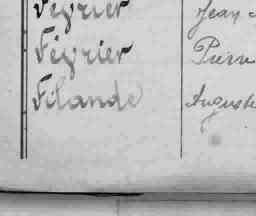 Février Jean
Février Pierre
Filande Auguste